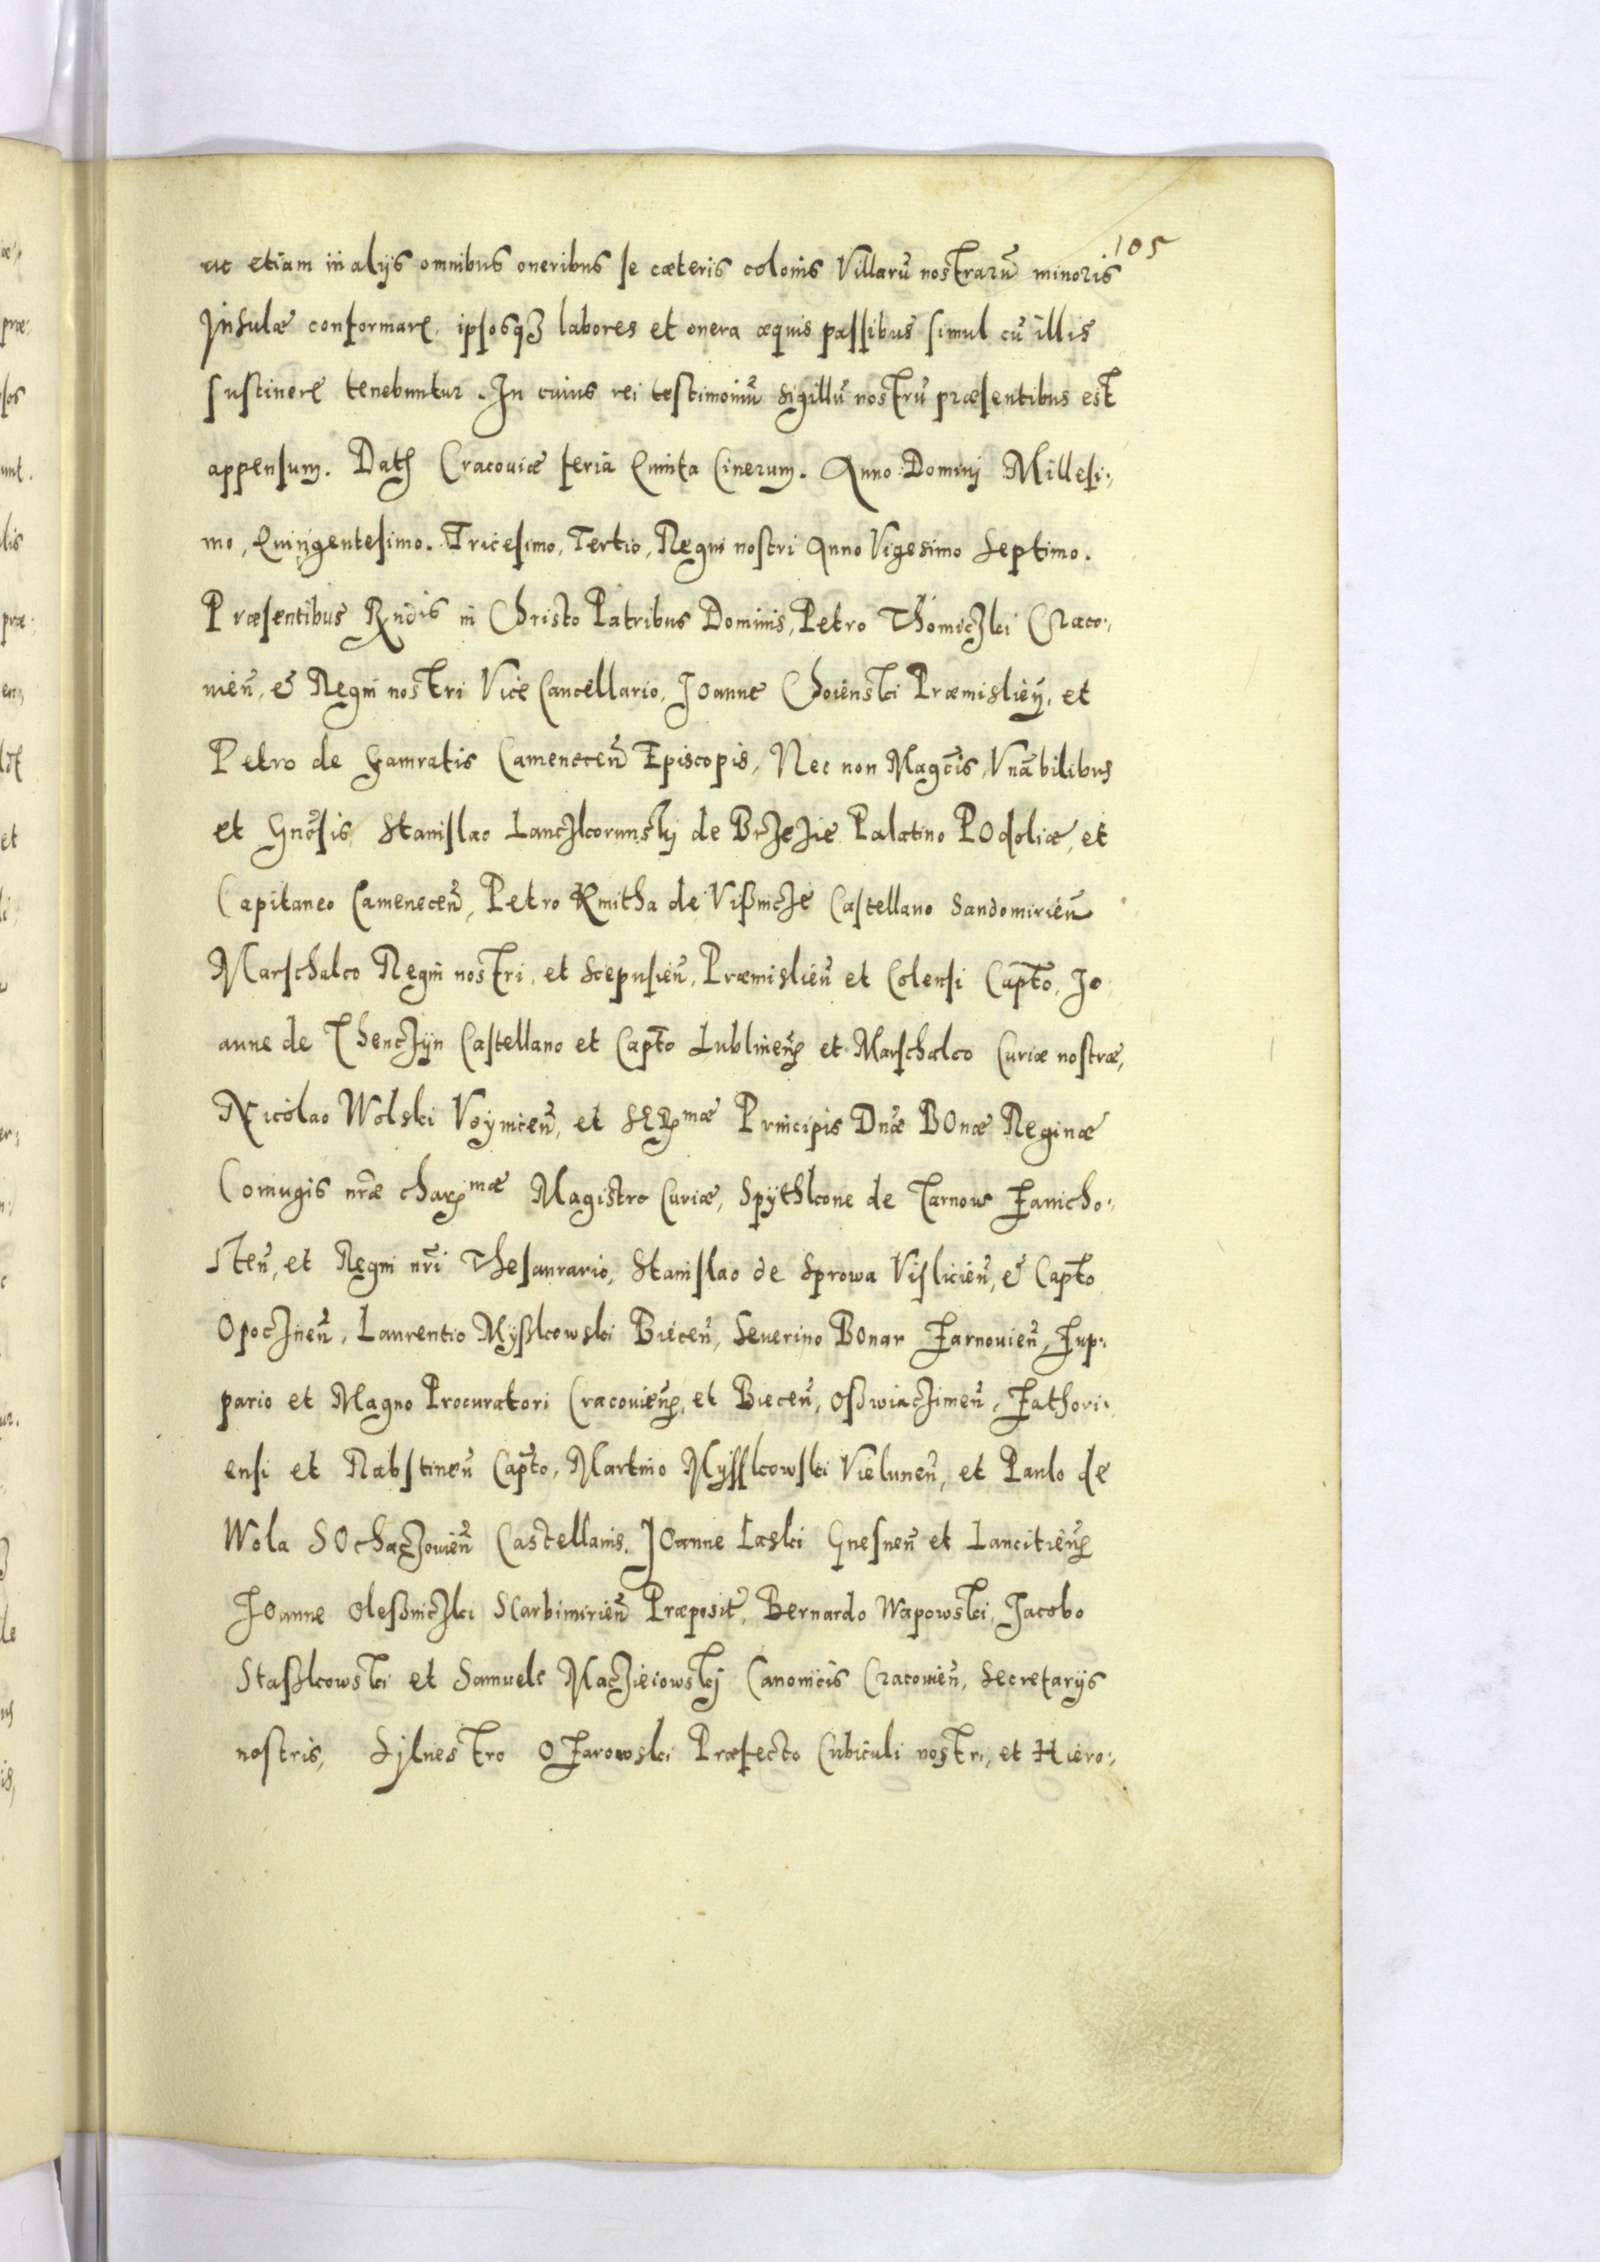 105
ac etiam in alijs omnibus oneribus se cæteris colonis Villarũ nostrarũ minoris
Insulæ conformare, ipsosq3 labores et onera æquis passibus simul cũ illis
sustinere tenebuntur. In cuius rei testimoniũ Sigillũ nostrũ præsentibus est
appensum. Dat Cracouiæ feria Quinta Cinerum. Anno Domini Millesi,,
mo, Quingentesimo. Tricesimo, Tertio, Regni nostri Anno Vigesimo Septimo.
Præsentibus Rndis in Christo Patribus Dominis, Petro Thomiczki Craco,,
uieñ, & Regni nostri Vice Cancellario, Joanne Choienski Præmislieñ, et
Petro de Gamratis Cameneceñ Episcopis, Nec non Magcis, Vnabilibus
et Gnosis, Stanislao Lanczkorunskij de Brzezie Palatino Podoliæ, et
Capitaneo Cameneceñ, Petro Kmitha de Vißnicze Castellano Sandomirieñ
Marschalco Regni nostri, et Scepusieñ, Præmislieñ et Colensi Capto, Jo
anne de Thenczijn Castellano et Capto Lublineñ et Marschalco Curiæ nostræ,
Nicolao Wolski Voyniceñ, et Sermæ Principis Dnæ Bonæ Reginæ
Coniugis nræ charmæ Magistro Curiæ, Spÿthkone de Tarnow Zanicho,,
steñ, et Regni nri Thesaurario, Stanislao de Sprowa Vislicieñ, & Capto
Opoczneñ, Laurentio Myßkowski Bieceñ, Seuerino Bonar Zarnouieñ, Zup,,
pario et Magno Procuratori Cracouieñ, et Bieceñ, Oßwiaczimeñ, Zathori,,
ensi et Rabstineñ Capto, Martino Myßkowski Vieluneñ, et Paulo de
Wola Sochaczouieñ Castellanis. Joanne Laski Gnesneñ et Lancitieñ
Joanne Oleßniczki Scarbimirieñ Præposit, Bernardo Wapowski, Jacobo
Staßkowski et Samuele Maczieiowskij Canonicis Cracouieñ, Secretarijs
nostris, Syluestro Ozarowski Præfecto Cubiculi nostri, et Hiero,,